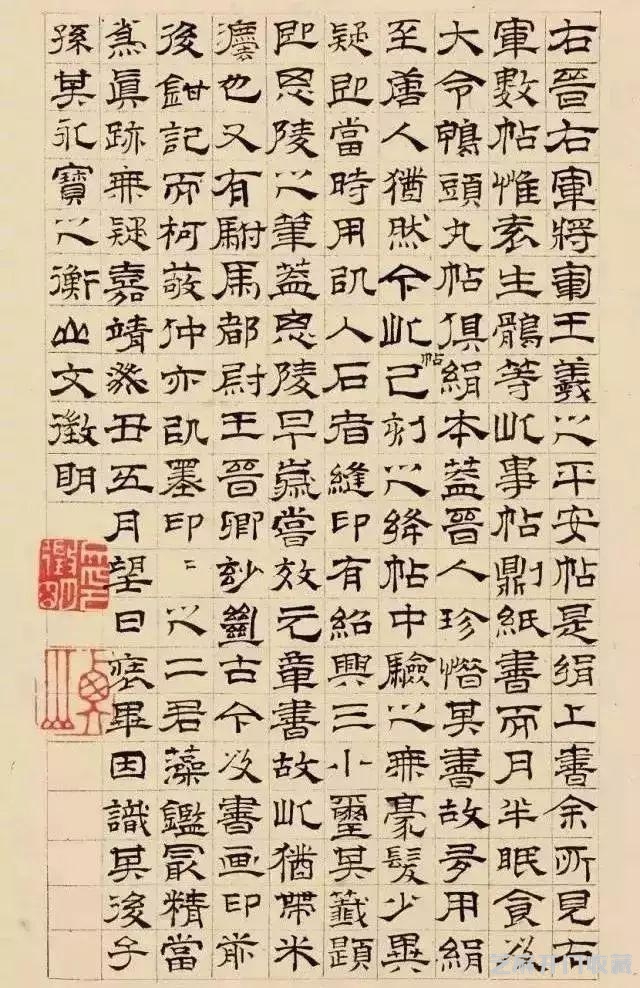 右晉右軍將軍王羲之平安帖是絹上書余所見右
軍數帖惟袁生鶻等此事帖則紙書而月半眠食以
大令鴨頭丸帖俱絹本蓋晉人珍惜其書故多用絹
至唐人猶然今此帖已刻之絳帖中驗之無豪髮少異
疑即當時用以入石者縫印有紹興三小璽其籤題
即思陵之筆蓋思陵早歲嘗效元章書故此猶帶米
灋也又有駙馬都尉王晉卿玅鑒古今及書画印前
後鉗記而柯敬仲亦以墨印〻之二君藻鑑最精當
為眞跡無疑嘉靖癸丑五月望日裝畢因識其後子
孫其永寶之衡山文徵明